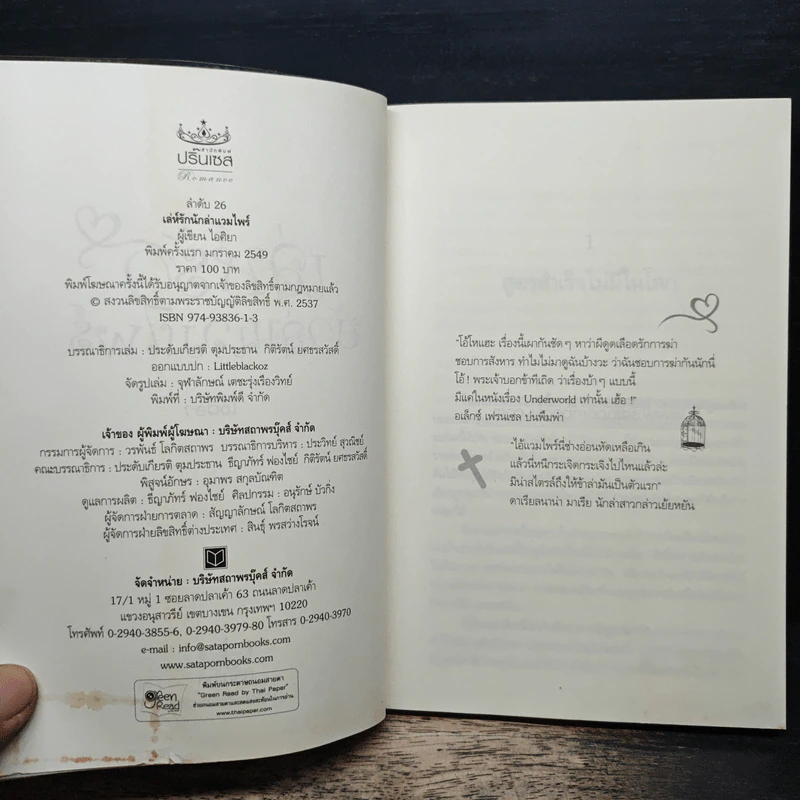 สำนักพิมพ์
ปริ๊นเซส
Romance
ลำดับ 26
เล่ห์รักนักล่าแวมไพร์
ผู้เขียน ไอศิยา
พิมพ์ครั้งแรก มกราคม 2549
ราคา 100 บาท
พิมพ์โฆษณาครั้งนี้ได้รับอนุญาตจากเจ้าของลิขสิทธิ์ตามกฎหมายแล้ว
© สงวนลิขสิทธิ์ตามพระราชบัญญัติลิขสิทธิ์ พ.ศ. 2537
ISBN 974-93836-1-3
บรรณาธิการเล่ม : ประดับเกียรติ ตุมประธาน กิติรัตน์ ยศธรสวัสดิ์
ออกแบบปก : Littleblackoz
จัดรูปเล่ม : จุฬาลักษณ์ เตชะรุ่งเรืองวิทย์
พิมพ์ที่ : บริษัทพิมพ์ดี จำกัด
เจ้าของ ผู้พิมพ์ผู้โฆษณา : บริษัทสถาพรบุ๊คส์ จำกัด
กรรมการผู้จัดการ : วรพันธ์ โลกิตสถาพร บรรณาธิการบริหาร : ประวิทย์ สุวณิชย์
คณะบรรณาธิการ : ประดับเกียรติ ตุมประธาน ธีญาภัทร์ ฟองไชย์ กิติรัตน์ ยศธรสวัสดิ์
พิสูจน์อักษร : อุมาพร สกุลบัณฑิต
ดูแลการผลิต : ธีญาภัทร์ ฟองไชย์ ศิลปกรรม : อนุรักษ์ บัวกิ่ง
ผู้จัดการฝ่ายการตลาด : สัญญาลักษณ์ โลกิตสถาพร
ผู้จัดการฝ่ายลิขสิทธิ์ต่างประเทศ : สินธุ์ พรสว่างโรจน์
จัดจำหน่าย : บริษัทสถาพรบุ๊คส์ จำกัด
17/1 หมู่ 1 ซอยลาดปลาเค้า 63 ถนนลาดปลาเค้า
แขวงอนุสาวรีย์ เขตบางเขน กรุงเทพฯ 10220
โทรศัพท์ 0-2940-3855-6, 0-2940-3979-80 โทรสาร 0-2940-3970
e-mail : info@satapornbooks.com
www.satapornbooks.com
Green Read
พิมพ์บนกระดาษถนอมสายตา
"Green Read by Thai Paper"
ช่วยถนอมสายตาและลดแสงสะท้อนในการอ่าน
www.thaipaper.com
"โอ้โหแฮะ เรื่องนี้เผากันชัดๆ หาว่าผีดูดเลือดรักการฆ่า
ชอบการสังหาร ทำไมไม่มาดูฉันบ้างวะ ว่าฉันชอบการฆ่ากันนักนี่
โอ้! พระเจ้าบอกข้าทีเถิด ว่าเรื่องบ้าๆ แบบนี้
มีแค่ในหนังเรื่อง Underworld เท่านั้น เฮ้อ !"
อเล็กซ์ เฟรนเซล บ่นพึมพำ
"ไอ้แวมไพร์นี่ช่างอ่อนหัดเหลือเกิน
แล้วนี่หนีกระเจิดกระเจิงไปไหนแล้วล่ะ
มีน่าสไตรล์ถึงให้ข้าล่ามันเป็นตัวแรก"
ดาเรียลนาน่า มาเรีย นักล่าสาวกล่าวเย้ยหยัน